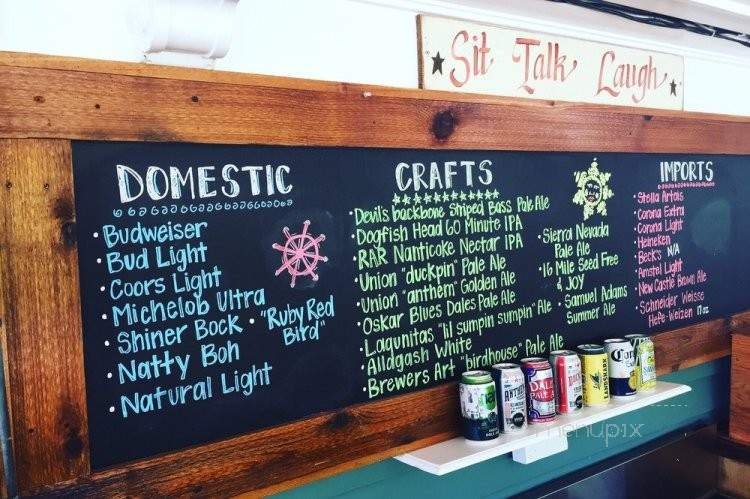 Sit Talk Laugh
DOMESTIC
• Budweiser
• Bud Light
• Coors Light
• Michelob Ultra
• Shiner Bock
• Natty Boh
• Natural Light
• "Ruby Red
Bird"
CRAFTS
• Devil's backbone Striped Bass Pale Ale
• Dogfish Head 60 Minute IPA
• RAR Nanticoke Nectar IPA
• Union "duckpin" Pale Ale
• Union "anthem" Golden Ale
• Oskar Blues Dales Pale Ale
• Lagunitas "lil sumpin sumpin" Ale
• Alldgash White
• Brewers Art "birdhouse" Pale Ale
• Sierra Nevada
Pale Ale
• 16 Mile Seed Free
& Joy
• Samuel Adams
Summer Ale
IMPORTS
• Stella Artois
• Corona Extra
• Corona Light
• Heineken
• Beck's N/A
• Amstel Light
• New Castle Brown Ale
• Schneider Weisse
Hefe-Weizen 17oz
ANTHEM
DALE'S
PALE A
LANDSHARK
Coro
menupix